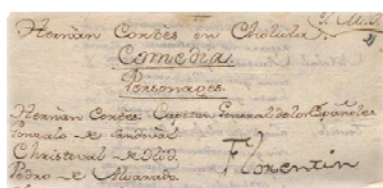 Hernàn Cortès en Cholula.
Comedia.
Personages.
Hernàn Cortès: Capitan General de los Españoles
Gonzalo de Sandoval
Christoval de Olid.
Pedro de Alvarado.
Florentin